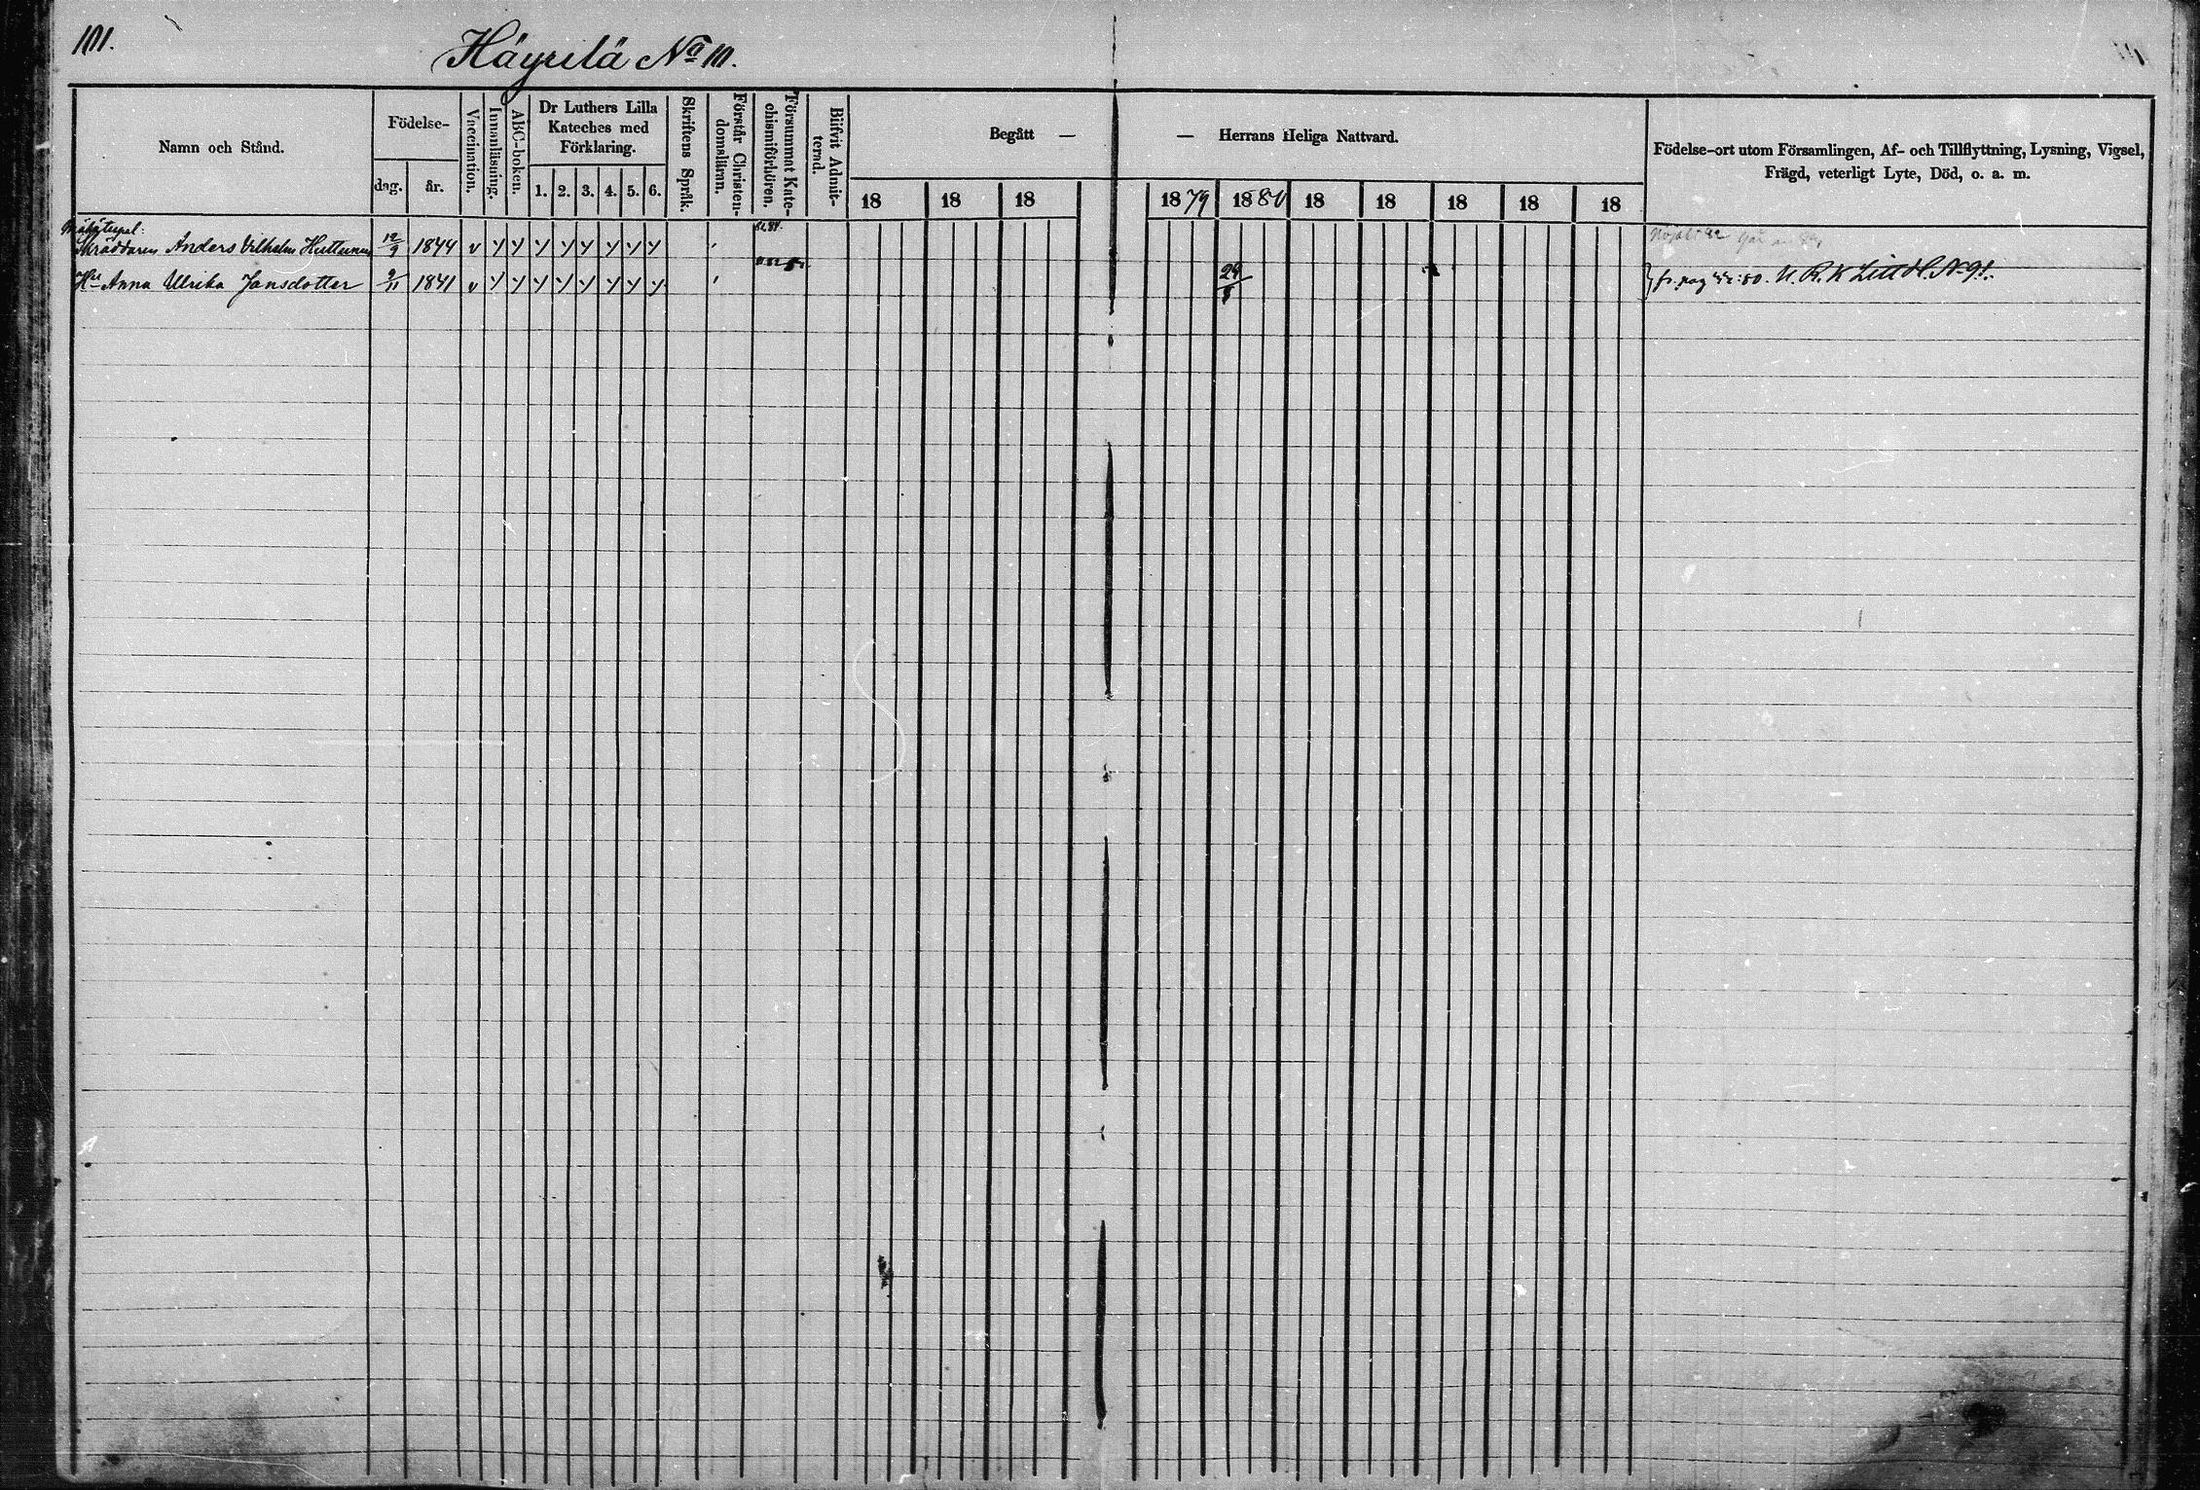 101.
Häyrilä No 10.
Namn och Stånd.
Födelse-
dag.
år.
Vaccination.
Innanläsning.
ABC-boken.
Dr Luthers Lilla
Kateches med
Förklaring.
1. 2. 3. 4. 5. 6.
Skriftens Språk.
Förstår Christen-
domsläran.
Försummat Kate-
chismiförhören.
Blifvit Admit-
terad.
Begått —
— Herrans Heliga Nattvard.
18 18 18 1879 1880 18 18 18 18 18
Födelse-ort utom Församlingen, Af- och Tillflyttning, Lysning, Vigsel,
Frägd, veterligt Lyte, Död, o. a. m.
Skräddaren Anders Vilhelm Huttunen 12/9 1844 v
Hu Anna Ulrika Jansdotter 9/11 1841 v 29/8 fr. pag :80. U. R. K Litt H. No 91.